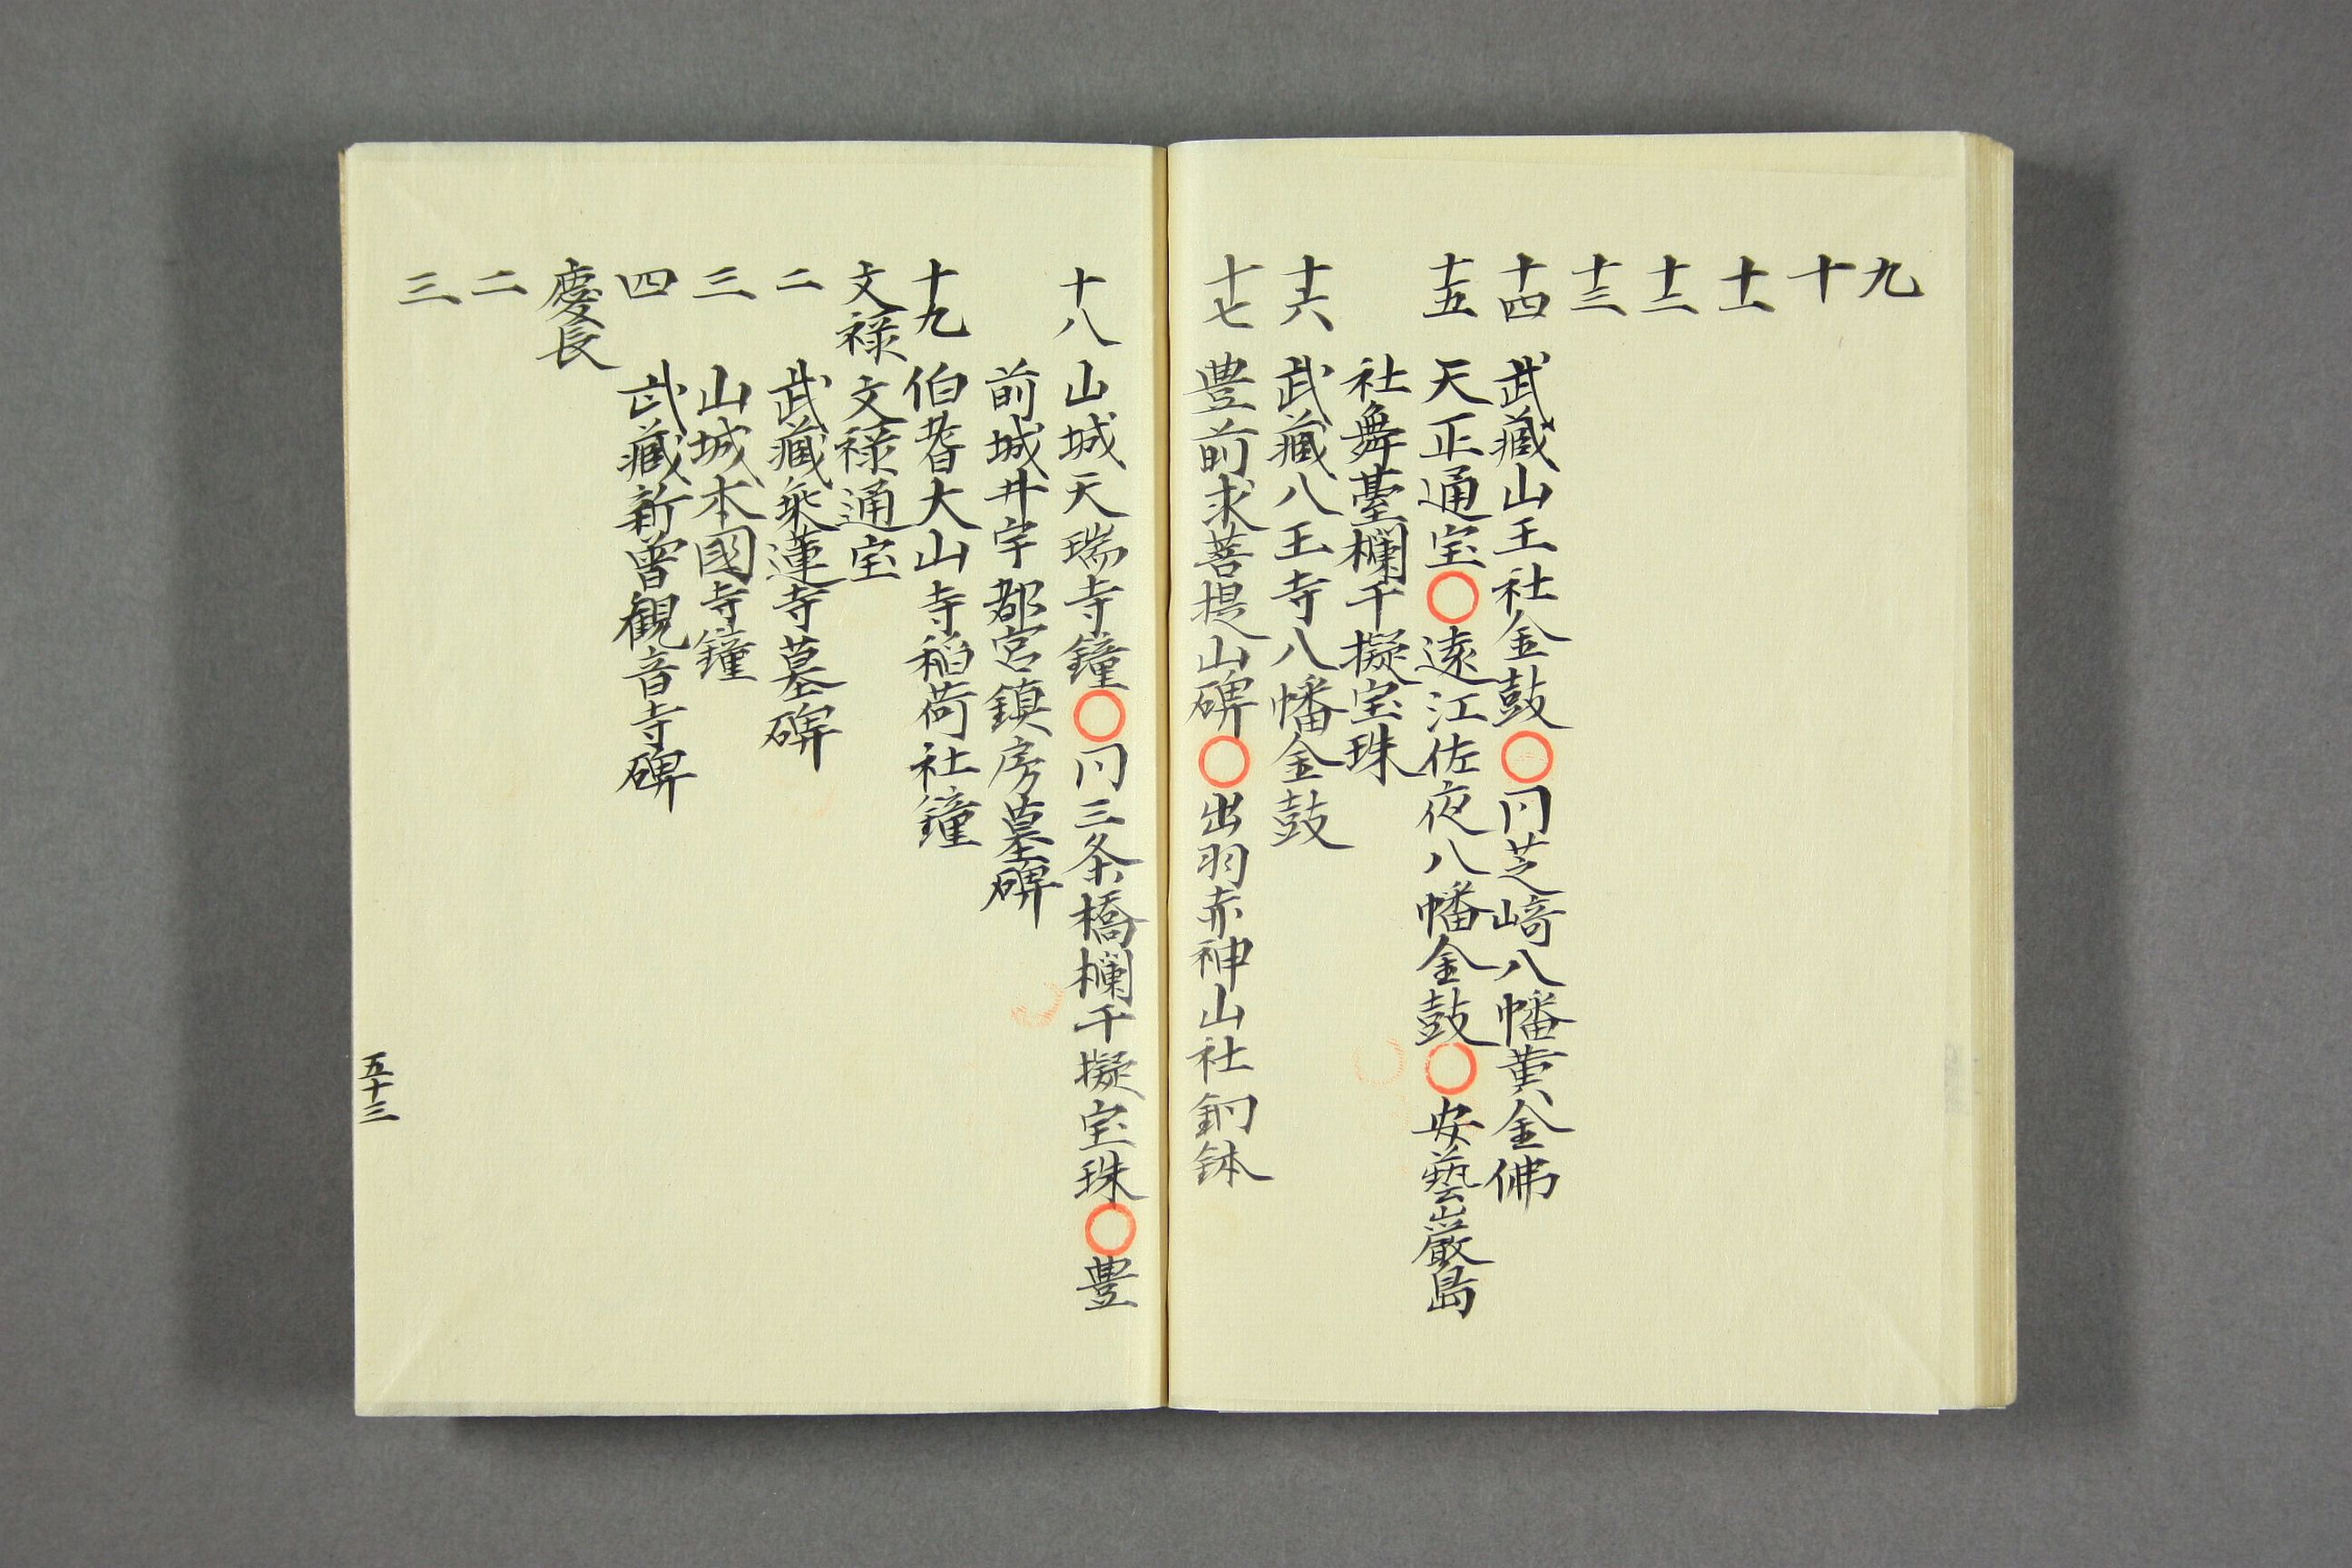 九
十
十一
十二
十三
十四 武藏山王社金鼓〇同芝﨑八幡黄金佛
十五 天正通宝〇遠江佐夜八幡金鼓〇安藝巌島
社舞臺欄干擬宝珠
十六 武藏八王寺八幡金鼓
十七 豊前求菩提山碑〇出羽赤神山社銅鉢
十八 山城天瑞寺鐘〇同三条橋欄干擬宝珠〇豊
前城井宇都宮鎮房墓碑
十九 伯耆大山寺稲荷社鐘
文禄 文禄通宝
二 武藏乗蓮寺墓碑
三 山城本國寺鐘
四 武藏新曽観音寺碑
慶長
二
三
五十三